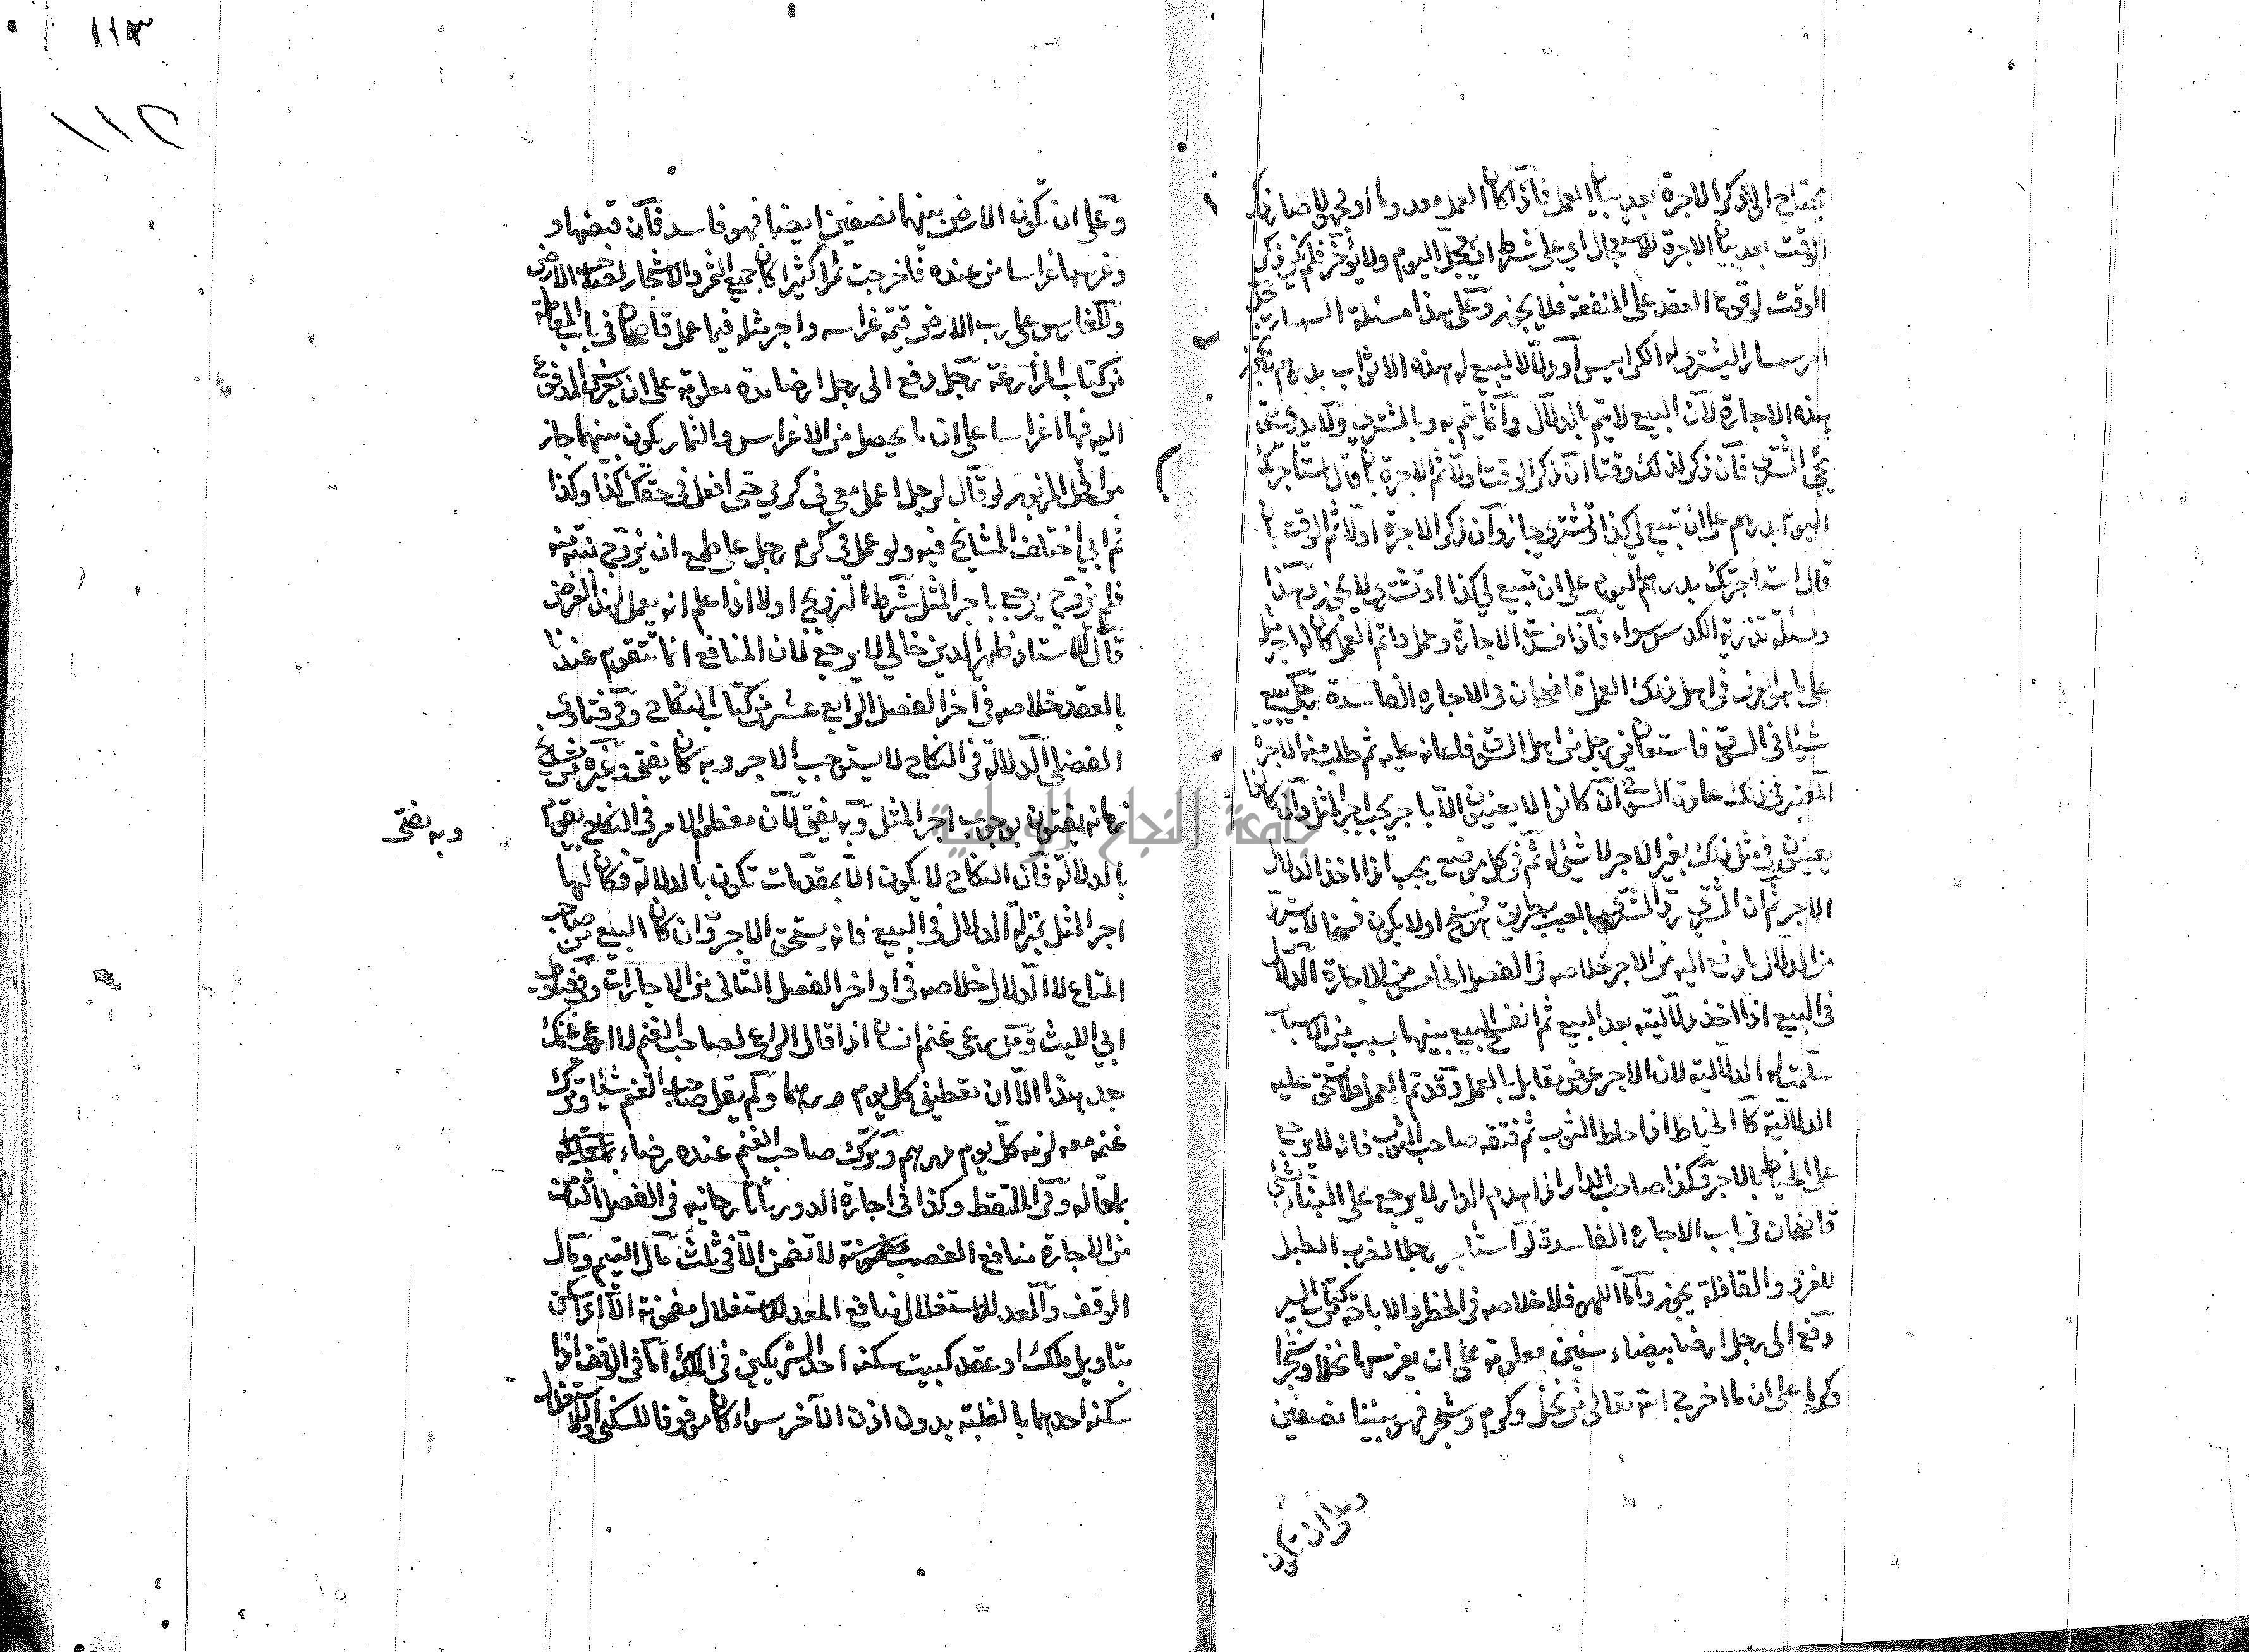 يحتاج الى ذكر الاجرة بعد بيان العمل فاذا كان العمل معدوما او مجهولا صار ذكر
الوقت بعد بيان الاجرة للاستعجال اي على شرط ان يعجل اليوم ولا يؤخر فلم يكن ذكر
الوقت لوقوع العقد على المنفعة فلا يجوز وعلى هذا مسئلة السمسار رجل
امر سمسارا ليشترى له الكرابيس او دلالا ليبيع له هذه الاثواب بدرهم لا يجوز
هذه الاجارة لان البيع لا يتم بالدلال وانما يتم به وبالمشتري ولا يدري متى
يجئ المشترى فان ذكر لذلك وقتا ان ذكر الوقت اولا ثم الاجرة بان قال استاجرتك
اليوم بدرهم على ان تبيع لي كذا او تشتري جاز وان ذكر الاجرة اولا ثم الوقت بان
قال استأجرتك بدرهم اليوم على ان تبيع لي كذا او تشتري لا يجوز وهذا
ومسئلة تذرية الكدس سواء فاذا فسدت الاجارة وعمل واتم العمل كان له اجر مثله
على ما هو العرف في اهل ذلك العمل قاضيخان في الاجارة الفاسدة رجل يبيع
شيئا في السوق فاستعان برجل من اهل السوق فاعانه عليه ثم طلب منه الاجرة
المعتبر في ذلك عادة السوق ان كانوا لا يعينون الا باجر يجب اجر المثل وان كانوا
يعينون في مثل ذلك بغير الاجر لا شيئ له ثم في كل موضع يجب اذا اخذ الدلال
الاجر ثم ان المشتري رد المشترى بالعيب بطريق هو فسخ او لا يكون فسخا لا يسترد
من الدلال ما دفع اليه من الاجر خلاصه في الفصل الخامس من الاجارة الدلال
في البيع اذا اخذ دلاليته بعد البيع ثم انفسخ البيع بينهما بسبب من الاسباب
سلمت له الدلالية لان الاجر عوض مقابل بالعمل وقد تم العمل فلا يستحق عليه
الدلالية كالخياط اذا خاط الثوب ثم فتقه صاحب الثوب فانه لا يرجع
على الخياط بالاجر وكذا صاحب الدار اذا هدم الدار لا يرجع على البناء بشئ
قاضيخان في باب الاجارة الفاسدة لو استأجر رجلا لضرب الطبل
للغزو والقافلة يجوز واما اللهو فلا خلاصه في الحظر والاباحة من كتاب السير
دفع الى رجل ارضا بيضاء سنين معلومة على ان يغرسها نخلا وشجرا
وكرما على ان ما اخرج الله تعالى من نخل وكرم وشجر فهو بيننا نصفين
وعلى ان تكون
١١٣
١١٢
وعلى ان تكون الارض بينهما نصفين ايضا فهو فاسد فان قبضها و
وغرسها غراسا من عنده فاخرجت ثمرا كثيرا كان جميع الثمر والاشجار لصاحب الارض
وللغارس على رب الارض قيمة غراسه واجر مثله فيما عمل قاضيخان في باب المعاملة
من كتاب المزارعة رجل دفع الى رجل ارضا مدة معلومة على ان يغرس المدفوع
اليه فيها اغراسا على ان ما يحصل من الاغراس والثمار يكون بينهما جاز
من المحل المزبور لو قال لرجل اعمل معي في كرمي حتى افعل في حقك كذا وكذا
ثم ابي اختلف المشائخ فيه ولو عمل في كرم رجل على طمع ان يزوج بنته منه
فلم يزوج يرجع باجر المثل شرط التزويج اولا اذا علم انه يعمل لهذا الغرض
قال الاستاذ ظهير الدين خالي لا يرجع لان المنافع انما تتقوم عندنا
بالعقد خلاصه في اخر الفصل الرابع عشر من كتاب النكاح وفي فتاوى
الفضلي الدلالة في النكاح لا يستوجب الاجر وبه كان يفتى وغيره من مشايخ
زمانه يفتون بوجوب اجر المثل وبه يفتى لان معظم الامر في النكاح يقوم
وبه يفتى
بالدلالة فان النكاح لا يكون الا بمقدمات تكون بالدلالة فكان لها
اجر المثل بمنزلة الدلال في البيع فانه يستحق الاجر وان كان البيع من صاحب
المتاع لا الدلال خلاصه في اواخر الفصل الثاني من الاجارات وفي فتاوى
ابي الليث ومن يرعى غنم انسان اذا قال الراعي لصاحب الغنم لا ارعى غنمك
بعد هذا الا ان تعطيني كل يوم درهما ولم يقل صاحب الغنم شيئا وترك
غنمه معه لزمه كل يوم درهم وترك صاحب الغنم عنده رضاء
بمقاله وفي الملتقط وكذا في اجارة الدور تاتارخانيه في الفصل الثامن
من الاجارة منافع الغصب لا تضمن الا في ثلث مال اليتيم ومال
الوقف والمعد للاستغلال منافع المعد للاستغلال مضمونة الا اذا سكن
بتاويل ملك او عقد كبيت سكنه احد الشريكين في الملك اما في الوقف اذا
سكنه احدهما بالغلبة بدون اذن الآخر سواء كان موقوفا للسكنى او للاستغلال